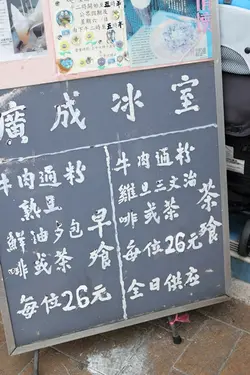 廣成冰室
牛肉通粉
熟旦
鮮油多包
啡或茶
早餐
每位26元
牛肉通粉
雞旦三文治
啡或茶
茶餐
每位26元
全日供应